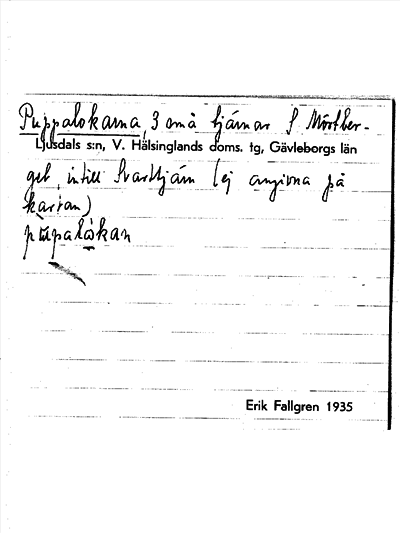 Puppalokarna, 3 små tjärnar S Mörtber-
Ljusdals s:n, V. Hälsinglands doms. tg, Gävleborgs län
get, intill Svarttjärn (ej angivna på
kartan)
pupalåkan
Erik Fallgren 1935